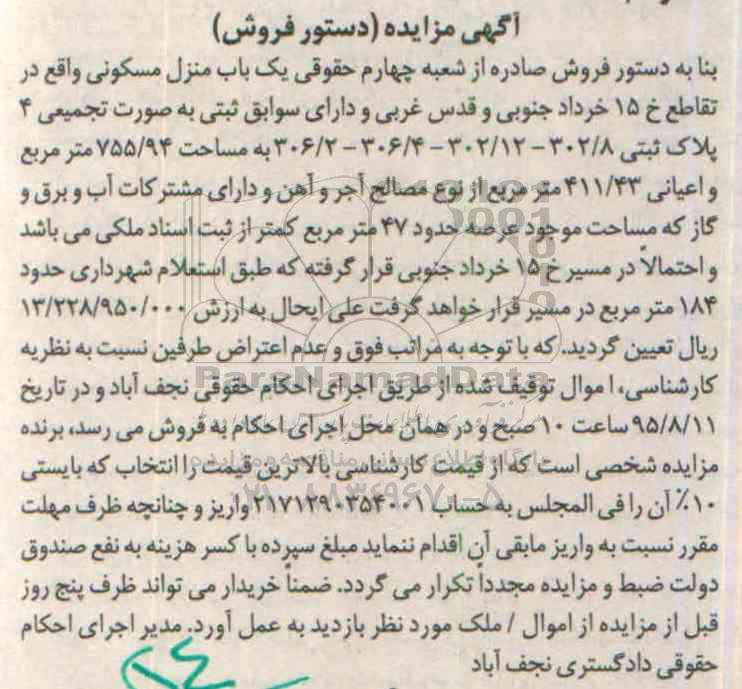 آگهی مزایده (دستور فروش)
بنا به دستور فروش صادره از شعبه چهارم حقوقی یک باب منزل مسکونی واقع در
تقاطع خ ۱۵ خرداد جنوبی و قدس غربی و دارای سوابق ثبتی به صورت تجمیعی ۴
پلاک ثبتی ۳۰۲/۸ – ۳۰۲/۱۲ – ۳۰۶/۴ – ۳۰۶/۲ به مساحت ۷۵۵/۹۴ متر مربع
و اعیانی ۴۱۱/۴۳ متر مربع از نوع مصالح آجر و آهن و دارای مشترکات آب و برق و
گاز که مساحت موجود عرصه حدود ۴۷ متر مربع کمتر از ثبت اسناد ملکی می باشد
و احتمالاً در مسیر خ ۱۵ خرداد جنوبی قرار گرفته که طبق استعلام شهرداری حدود
۱۸۴ متر مربع در مسیر قرار خواهد گرفت علی ایحال به ارزش ۱۳/۲۲۸/۹۵۰/۰۰۰
ریال تعیین گردید. که با توجه به مراتب فوق و عدم اعتراض طرفین نسبت به نظریه
کارشناسی، اموال توقیف شده از طریق اجرای احکام حقوقی نجف آباد و در تاریخ
۹۵/۸/۱۱ ساعت ۱۰ صبح و در همان محل اجرای احکام به فروش می رسد، برنده
مزایده شخصی است که از قیمت کارشناسی بالاترین قیمت را انتخاب که بایستی
۱۰٪ آن را فی المجلس به حساب ۲۱۷۱۲۹۰۳۵۴۰۰۱ واریز و چنانچه ظرف مهلت
مقرر نسبت به واریز مابقی آن اقدام ننماید مبلغ سپرده با کسر هزینه به نفع صندوق
دولت ضبط و مزایده مجدداً تکرار می گردد. ضمناً خریدار می تواند ظرف پنج روز
قبل از مزایده از اموال / ملک مورد نظر بازدید به عمل آورد. مدیر اجرای احکام
حقوقی دادگستری نجف آباد
ParsNamadData